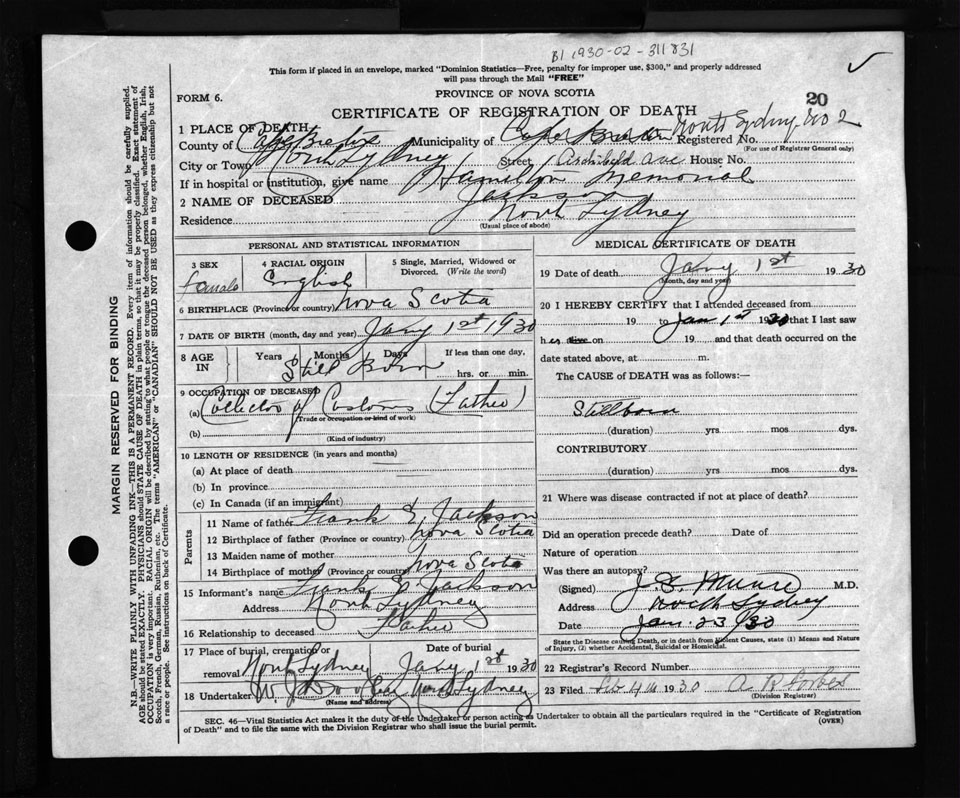 B1 1930-02-311831
This form if placed in an envelope, marked "Dominion Statistics—Free, penalty for improper use, $300," and properly addressed
will pass through the Mail "FREE"
PROVINCE OF NOVA SCOTIA
FORM 6.
20
CERTIFICATE OF REGISTRATION OF DEATH
1 PLACE OF DEATH
County of Cape Breton Municipality of Cape Breton North Sydney No 2 Registered No.
(For use of Registrar General only)
City or Town North Sydney Street Archibald Ave House No.
If in hospital or institution, give name Hamilton Memorial
2 NAME OF DECEASED Jackson
Residence North Sydney
(Usual place of abode)
PERSONAL AND STATISTICAL INFORMATION
3 SEX female
4 RACIAL ORIGIN English
5 Single, Married, Widowed or Divorced. (Write the word)
6 BIRTHPLACE (Province or country) Nova Scotia
7 DATE OF BIRTH (month, day and year) Jany 1st 1930
8 AGE IN Years Months Days If less than one day, hrs. or min.
Still Born
9 OCCUPATION OF DECEASED
(a) Collector of Customs (Father)
Trade or occupation or kind of work)
(b)
(Kind of industry)
10 LENGTH OF RESIDENCE (in years and months)
(a) At place of death
(b) In province
(c) In Canada (if an immigrant)
Parents
11 Name of father Frank E. Jackson
12 Birthplace of father (Province or country) Nova Scotia
13 Maiden name of mother
14 Birthplace of mother (Province or country) Nova Scotia
15 Informant's name Frank E. Jackson
Address North Sydney
16 Relationship to deceased Father
17 Place of burial, cremation or removal North Sydney
Date of burial Jany 1st 1930
18 Undertaker North Sydney
(Name and address)
MEDICAL CERTIFICATE OF DEATH
19 Date of death Jany 1st 1930
(Month, day and year)
20 I HEREBY CERTIFY that I attended deceased from
19 to Jan 1st 1930 that I last saw
h er alive on 19 and that death occurred on the
date stated above, at m.
The CAUSE OF DEATH was as follows:—
Stillborn
(duration) yrs mos dys.
CONTRIBUTORY
(duration) yrs mos dys.
21 Where was disease contracted if not at place of death?
Did an operation precede death? Date of
Nature of operation
Was there an autopsy?
(Signed) M.D.
Address North Sydney
Date Jan. 23/30
State the Disease causing Death, or in death from Violent Causes, state (1) Means and Nature
of Injury, (2) whether Accidental, Suicidal or Homicidal.
22 Registrar's Record Number
23 Filed Feb 4th 1930 A R Forbes
(Division Registrar)
SEC. 46—Vital Statistics Act makes it the duty of the Undertaker or person acting as Undertaker to obtain all the particulars required in the "Certificate of Registration
of Death" and to file the same with the Division Registrar who shall issue the burial permit.
(OVER)
MARGIN RESERVED FOR BINDING
N.B.—WRITE PLAINLY WITH UNFADING INK—THIS IS A PERMANENT RECORD. Every item of information should be carefully supplied.
AGE should be stated EXACTLY. PHYSICIANS should STATE CAUSE OF DEATH in plain terms, so that it may be properly classified. Exact statement of
OCCUPATION is very important. RACIAL ORIGIN will be described by stating to what people or tongue the deceased person belonged, whether English, Irish,
Scotch, French, German, Russian, Ruthenian, etc. The terms "AMERICAN" or "CANADIAN" SHOULD NOT BE USED as they express citizenship but not
a race or people. See instructions on back of Certificate.